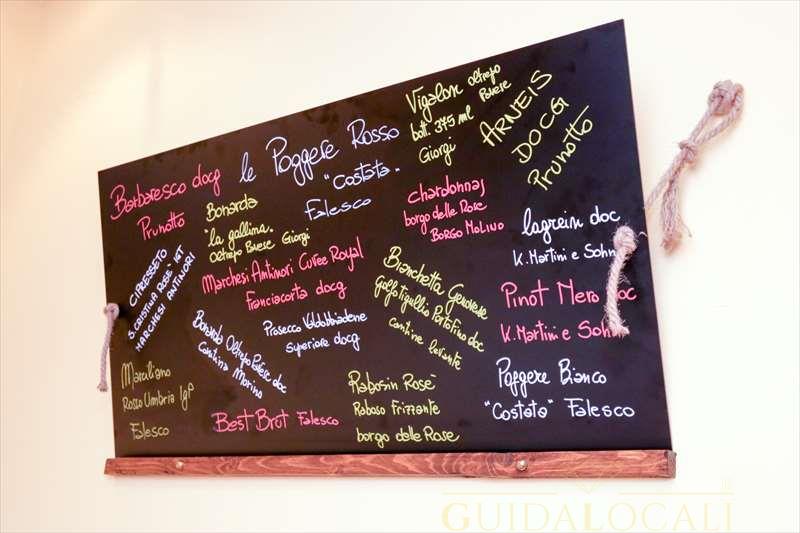 Barbaresco docg
Prunotto
le Poggere Rosso
"Costata".
Falesco
Vigalon oltrepo
Pavese
bott. 375 ml
Giorgi
ARNEIS
DOCG
Prunotto
Bonarda
"la gallina.
Oltrepo Pavese Giorgi
Chardonnay
borgo delle Rose
BORGO MOLINO
lagrein doc
K. Martini e Sohn
CIPRESSETO
S. CRISTINA ROSE' IGT
MARCHESI ANTINORI
Marchesi Antinori Cuvee Royal
franciacorta docg
Bianchetta Genovese
golfo tigullio Portofino doc
cantine levante
Pinot Nero doc
K. Martini e Sohn
Bonarda Oltrepo Pavese doc
Cantina Marino
Prosecco Valdobbiadene
superiore docg
Marciliano
Rosso Umbria Igp
Falesco
Best Brut Falesco
Rabosin Rosè
Raboso Frizzante
borgo delle Rose
Poggere Bianco
"Costata" Falesco
GUIDALOCALI